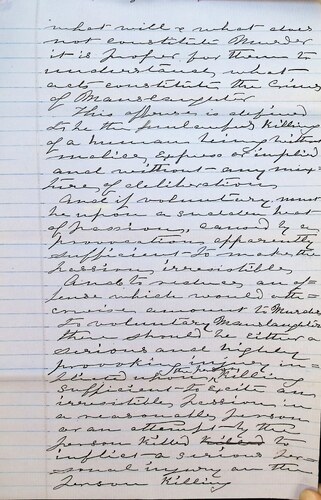 what will & what does
not constitute Murder
it is proper for them to
understand what
acts constitute the Crime
of Manslaughter
This offense is defined
to be the unlawful Killing
of a human being without
malice, express or implied
and without any mix-
ture of deliberation
And if voluntary must
be upon a sudden heat
of passion, caused by a
provocation apparently
sufficient to make the
passion irresistible
And to reduce an of-
fense which would oth-
erwise amount to Murder
to voluntary Manslaughter
there should be either a
serious and highly
provoking injury in-
flicted upon the party Killing
sufficient to excite an
irresistible passion in
a reasonable person
or an attempt by the
person Killed to
inflict a serious per-
sonal injury on the
person Killing